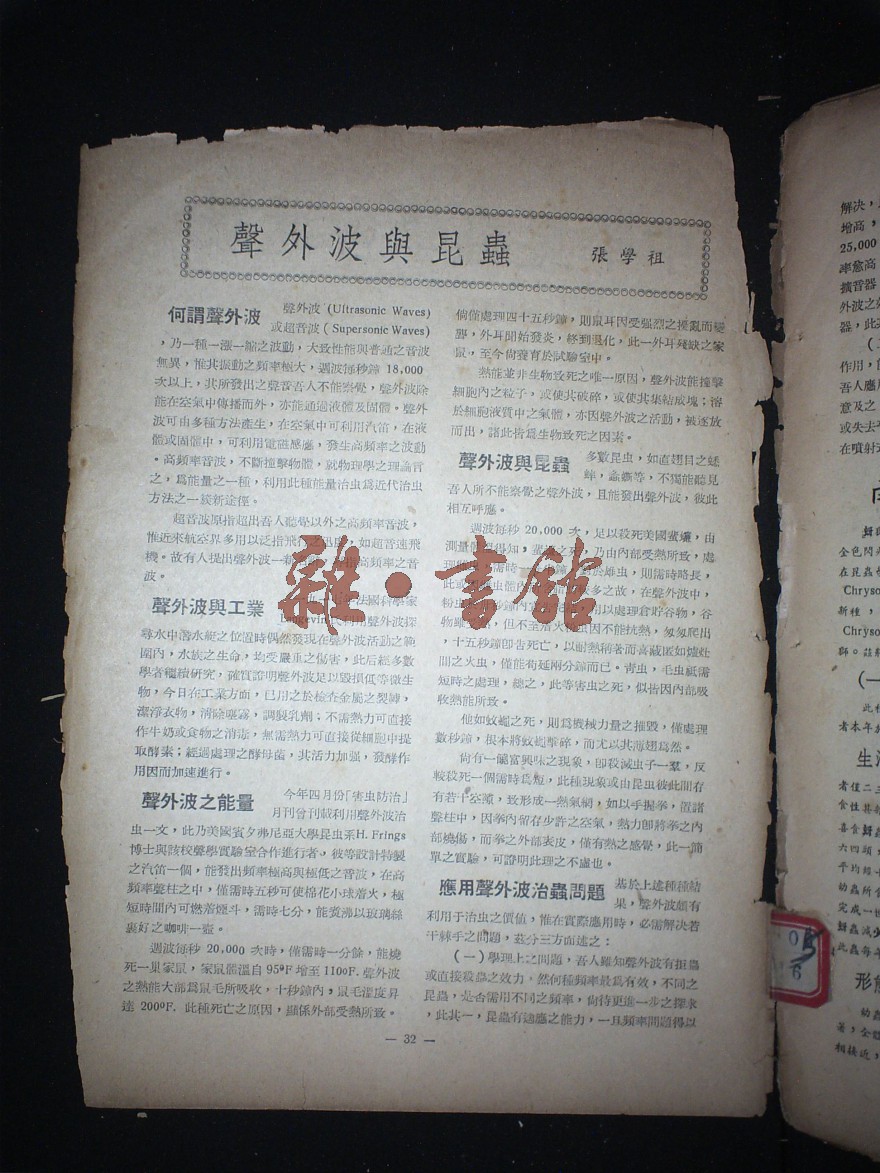 聲外波與昆蟲
張學祖
何謂聲外波
聲外波 (Ultrasonic Waves)
或超音波 (Supersonic Waves)
，乃一種一漲一縮之波動，大致性能與普通之音波
無異，惟其振動之頻率極大，週波每秒鐘 18,000
次以上，其所發出之聲音吾人不能察覺，聲外波除
能在空氣中傳播而外，亦能通過液體及固體。聲外
波可由多種方法產生，在空氣中可利用汽笛，在液
體或固體中，可利用電磁感應，發生高頻率之波動
。高頻率音波，不斷撞擊物體，就物理學之理論言
之，爲能量之一種，利用此種能量治虫爲近代治虫
方法之一嶔新途徑。
超音波原指超出吾人聽覺以外之高頻率音波，
惟近來航空界多用以泛指飛行之迅速，如超音速飛
機。故有人提出聲外波一
指高頻率之音
波。
聲外波與工業
法國科學家
Langevin
利用聲外波探
尋水中潛水艇之位置時偶然發現在聲外波活動之範
圍內，水族之生命，均受嚴重之傷害，此后經多數
學者繼續研究，確實證明聲外波足以毀損低等微生
物，今日在工業方面，已用之於檢查金屬之裂縫，
潔淨衣物，消除塵霧，調製乳劑；不需熱力可直接
作牛奶或食物之消毒，無需熱力可直接從細胞中提
取酵素；經過處理之酵母菌，其活力加强，發酵作
用因而加速進行。
聲外波之能量
今年四月份「害虫防治」
月刊曾刊載利用聲外波治
虫一文，此乃美國賓夕弗尼亞大學昆虫系H. Frings
博士與該校聲學實驗室合作進行者，彼等設計特製
之汽笛一個，能發出頻率極高與極低之音波，在高
頻率聲柱之中，僅需時五秒可使棉花小球着火，極
短時間內可燃着煙斗，需時七分，能煑沸以玻璃絲
裹好之咖啡一壼。
週波每秒 20,000 次時，僅需時一分餘，能燒
死一巢家鼠，家鼠體溫自 95°F 增至 110°F. 聲外波
之熱能大部爲鼠毛所吸收，十秒鐘內，鼠毛溫度昇
達 200°F. 此種死亡之原因，顯係外部受熱所致。
倘僅處理四十五秒鐘，則鼠耳因受强烈之擾亂而變
聾，外耳開始發炎，終到退化，此一外耳殘缺之家
鼠，至今尙養育於試驗室中。
熱能並非生物致死之唯一原因，聲外波能撞擊
細胞內之粒子，或使其破碎，或使其集結成塊；溶
於細胞液質中之氣體，亦因聲外波之活動，被逐放
而出，諸此皆爲生物致死之因素。
聲外波與昆蟲
多數昆虫，如直翅目之蟋
蟀，螽蟖等，不獨能聽見
吾人所不能察覺之聲外波，且能發出聲外波，彼此
相互呼應。
週波每秒 20,000 次，足以殺死美國蜚蠊，由
測量
得知，蜚
之死，乃由內部受熱所致，處
需時一
鐘，
於雄虫，則需時略長，
多之故，在聲外波中，
用以處理倉貯谷物，谷
物
，但不至着火
虫因不能抗熱，匆匆爬出
，十五秒鐘卽吿死亡，以耐熱稱著而喜藏匿如爐灶
間之火虫，僅能苟延兩分鐘而已。靑虫，毛虫祗需
短時之處理，總之，此等害虫之死，似皆因內部吸
收熱能所致。
他如蚊蠅之死，則爲機械力量之摧毀，僅處理
數秒鐘，根本將蚊蠅擊碎，而尤以其薄翅爲然。
尙有一饒富興味之現象，卽殺滅虫子一羣，反
較殺死一個需時爲短，此種現象或由昆虫彼此間存
有若干空隙，致形成一熱氣網，如以手握拳，置諸
聲柱中，因拳內留存少許之空氣，熱力卽將拳之內
部燒傷，而拳之外部表皮，僅有熱之感覺，此一簡
單之實驗，可證明此理之不虛也。
應用聲外波治蟲問題
基於上述種種結
果，聲外波頗有
利用于治虫之價值，惟在實際應用時，必需解决若
干棘手之問題，茲分三方面述之：
(一)學理上之問題，吾人雖知聲外波有拒蟲
或直接殺蟲之效力。然何種頻率最爲有效，不同之
昆蟲，是否需用不同之頻率，尙待更進一步之探求
，此其一，昆蟲有適應之能力，一旦頻率問題得以
— 32 —
雜·書館
解決，
增高，
25,000
率愈高
擴音器
外波之
器，此
作用，
吾人應用
意及之
或失去
在噴射
金色閃
在昆蟲
Chryso
新種，
Chryso
獅。莊
(一
此種
者本年
生活
者僅二三
食性其
喜食蚜
六四頭，
平均每
幼蟲所
完成一
蚜蟲減少
此蟲每年
形態
幼蟲
著，全體
相接近，